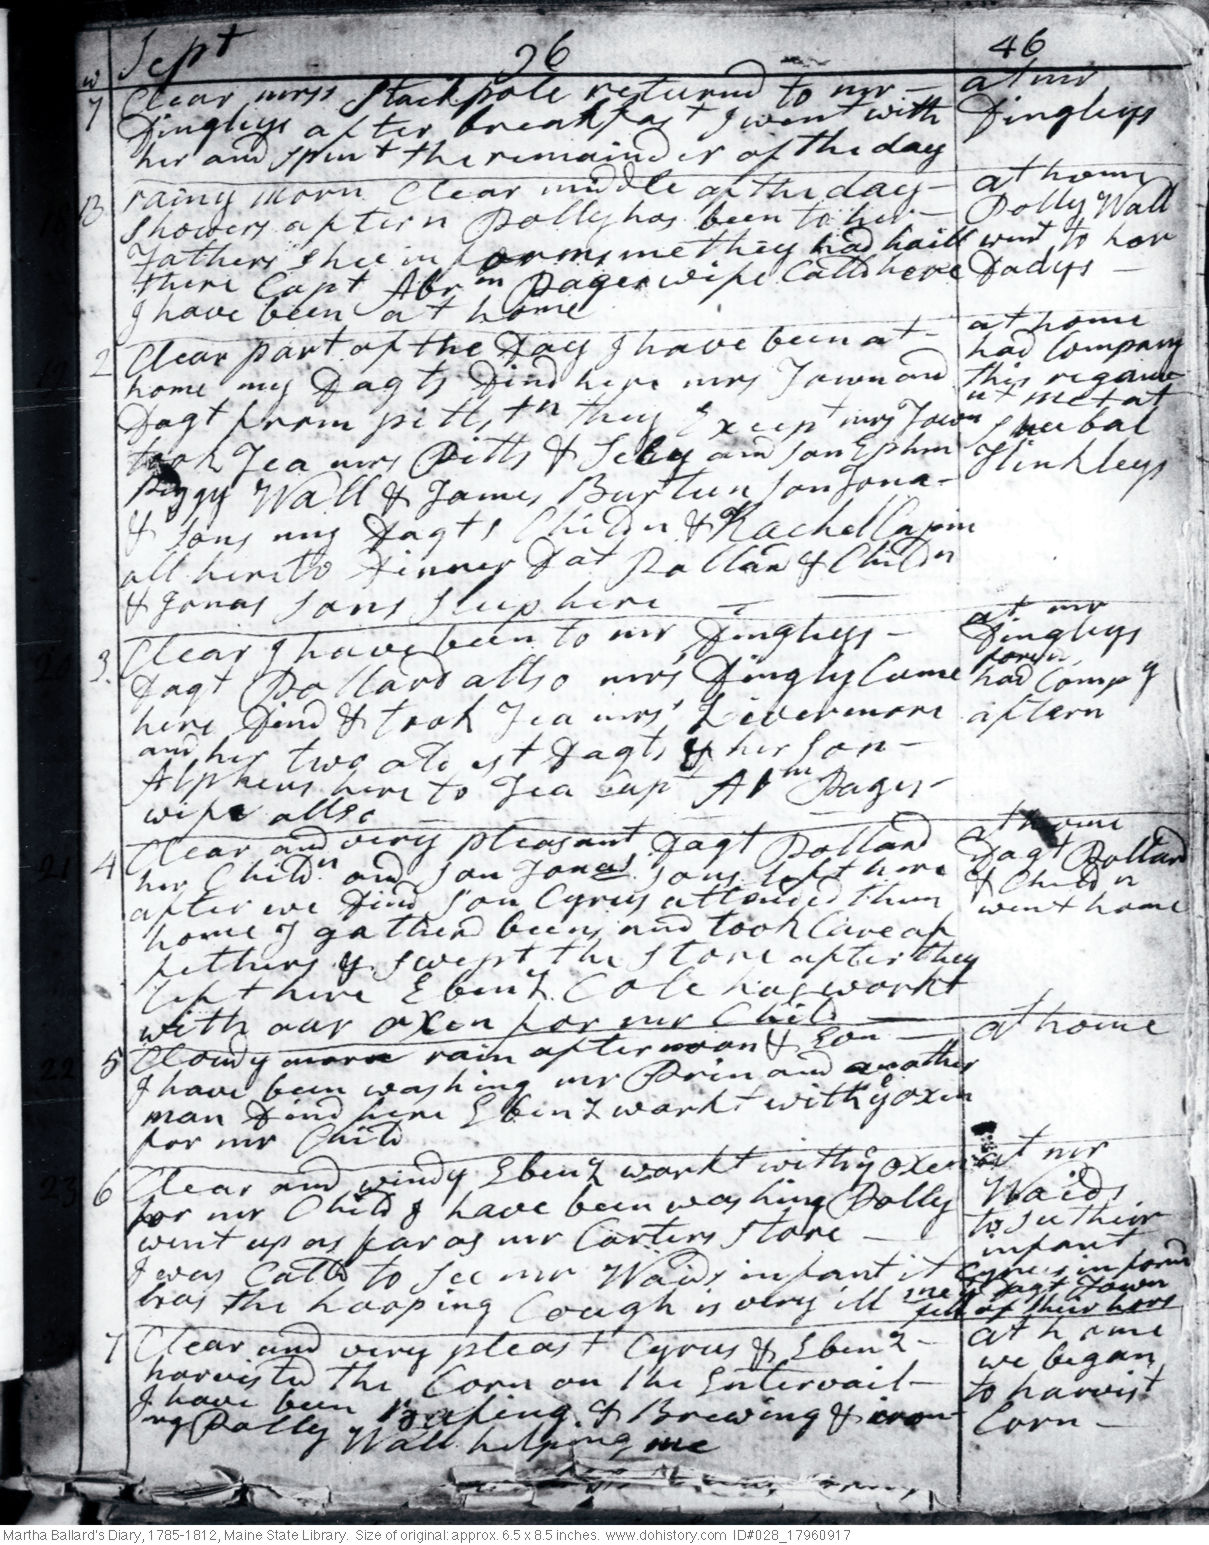 Sept 96 46
w
7 Clear mrss Stackpole returnd to mr – at mr
Dingleys after breakfast I went with Dingleys
her and spent the remaind er of the day
18 B rainy morn Clear middle of the day – at home
showers aftern Dolly has been to her – Polly Wall
Fathers shee informs me they had haill went to her
there Capt Abrm Pages wife Calld here Dadys –
I have been at home
19 2 Clear part of the Day I have been at – at home
home my Dagts Dind here mrs Town and had Company
Dagt from pittstn they Except mrs Town this regament
took Tea mrs Pitts & Seby and son Ephm met at
Peggy Wall & James Burtun son Jona – Shubal
& sons my Dagts Childn & Rachel Capin Hinkleys
all here to Dinner Dat Pollard & Childn
& Jonas sons sleep here – –
20 3 Clear I have been to mr Dingleys – at mr
Dagt Pollard allso mrs Dingly Came Dingleys
here Dind & took Tea mrs Livermore foren
and her two oldest Dagts & her son – had Compy
Alpheus here to Tea Capt Abm Pages – aftern
wife allso
21 4 Clear and very pleasant Dagt Pollard at home
her Childn and son Jonas sons left here Dagt Pollard
after we Dind son Cyrus attended them & Childn
home I gatherd beens and took Care of went home
fethers & swept the store after they
left here Ebenz Cole has workt
with our oxen for mr Child –
22 5 Clowdy morn rain afternoon & Evn – at home
I have been washing mr Prin and another
man Dind here Ebenz workt with ye oxen
for mr Child
23 6 Clear and windy Ebenz workt with ye oxen at mr
for mr Child I have been washing Dolly Waids
went up as far as mr Carters store – to see their
I was Calld to see mr Waids infant it infant
has the hooping Cough is very ill Cyrus informd
me yt Dagt Town
fell of their hors
7 Clear and very pleast Cyrus & Ebenz – at home
harvisted the Corn on the Entervail – we began
I have been Bakeing & Brewing & iron – to harvist
ng Dolly Wall helping me Corn –
Martha Ballard's Diary, 1785-1812, Maine State Library. Size of original: approx. 6.5 x 8.5 inches. www.dohistory.com ID#028_17960917